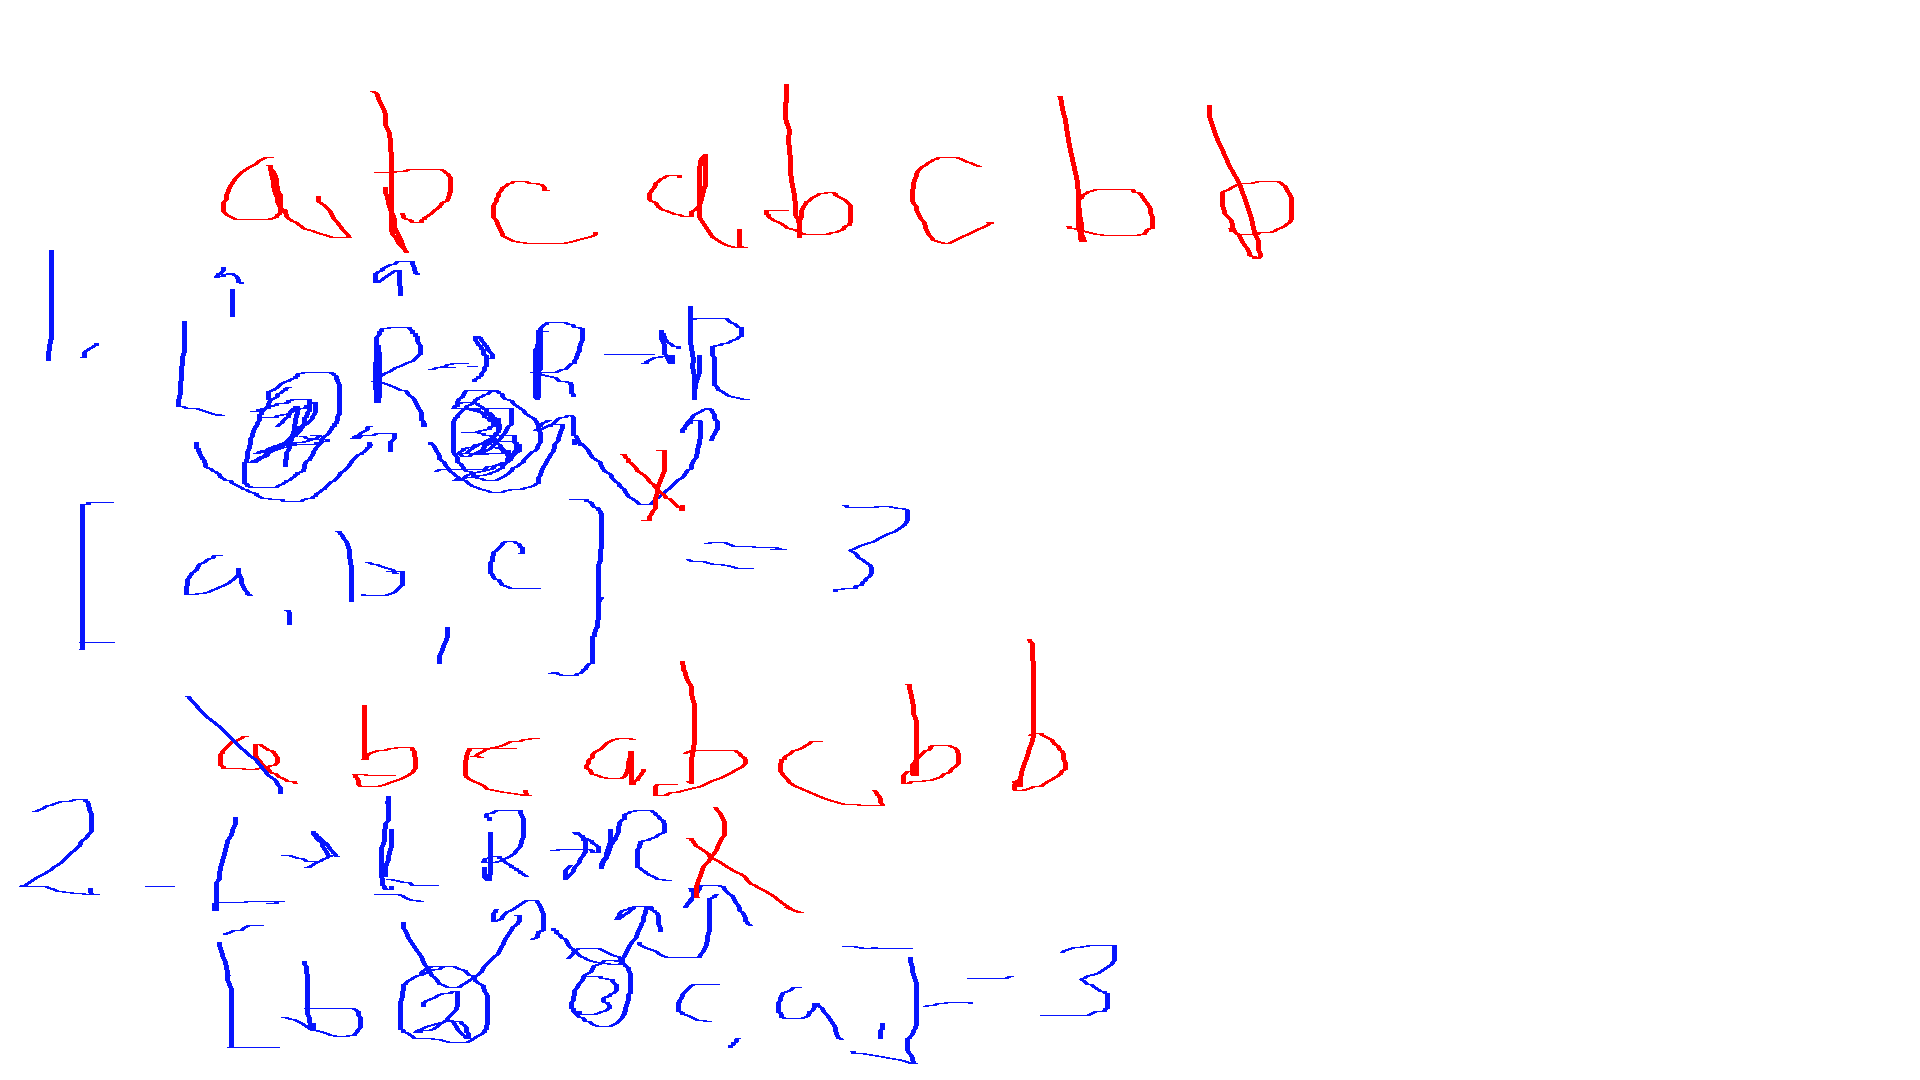 a, b c a, b c b b
1. L R → R → R
2 3 X
[ a, b, c ] = 3
a b c a, b c, b b
2 - L → L R → R X
[ b 2 3 c, a, ] = 3